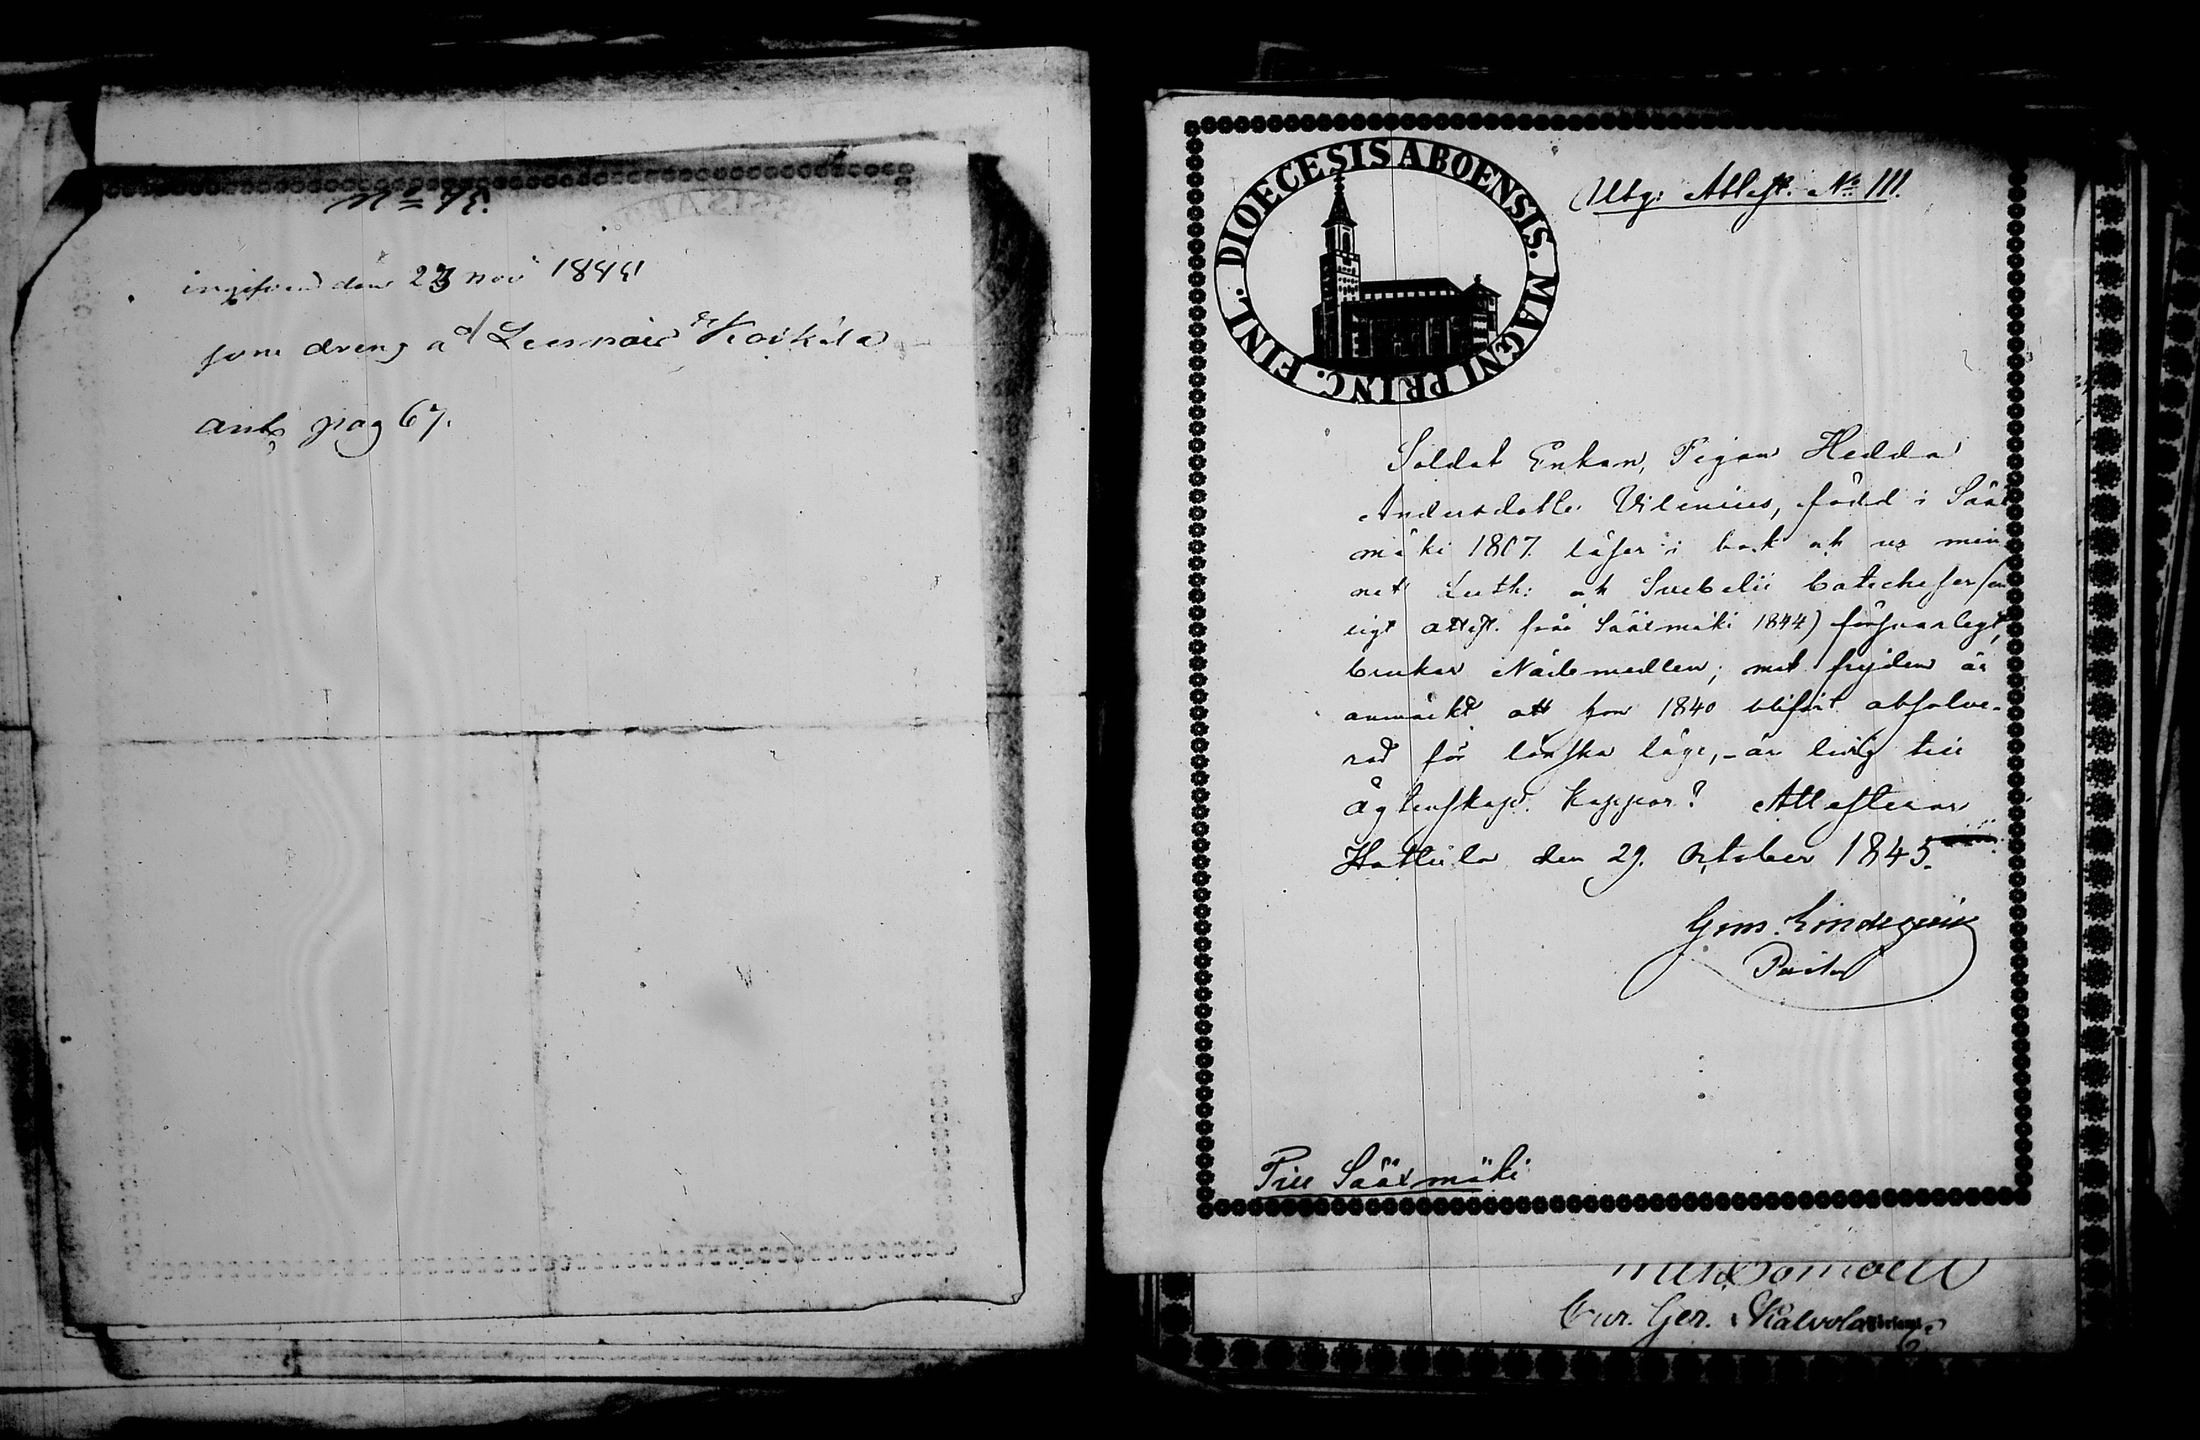 ingifven den 23 nov 1845
som dreng a
ant. pag 67.
DIOECESIS ABOENSIS. MAGNI PRINC. FINL.
Utg: Attest. No 111.
Soldat Enkan, Pigan Hedda
Andersdotter Vilenius, född i Sääx
mäki 1807. läser i bok och ur min
net Luth: och Svebelii Catecheser (en
ligt attest. från Sääxmäki 1844) försvarligt,
brukar Nådemedlen; met frejden är
anmärkt att hon 1840 blifvit absolve-
rad för lönska läge, - är ledig till
Ägtenskap. koppor? Attesterar
Hattula den 29. October 1845.
Pastor
Till Sääxmäki
Cur. Ger. Kalvola